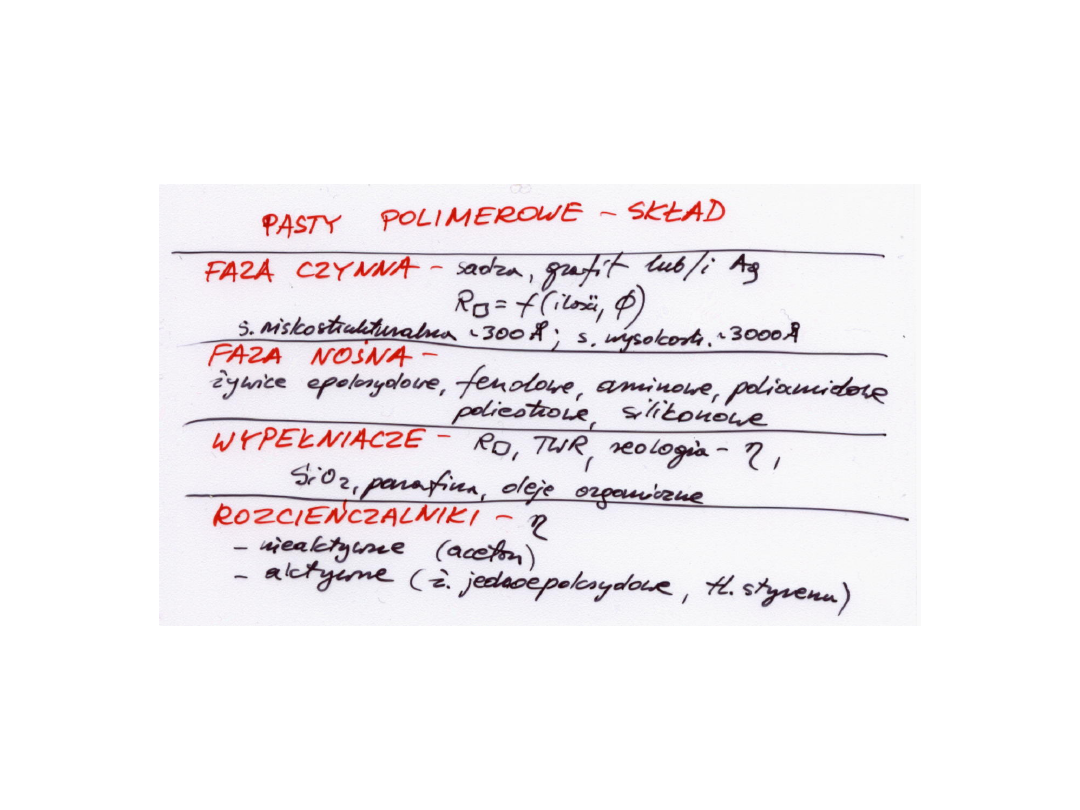 PASTY POLIMEROWE – SKŁAD
FAZA CZYNNA – sadza, grafit lub/i Ag
R□ = f(ilość, ϕ)
s. niskostrukturalna ~300Å; s. wysokostr. ~3000Å
FAZA NOŚNA –
żywice epoksydowe, fenolowe, aminowe, poliamidowe
poliestrowe, silikonowe
WYPEŁNIACZE – R□, TWR, reologia – η,
SiO2, parafina, oleje organiczne
ROZCIEŃCZALNIKI – η
– nieaktywne (aceton)
– aktywne (ż. jednoepoksydowe, tl. styrenu)